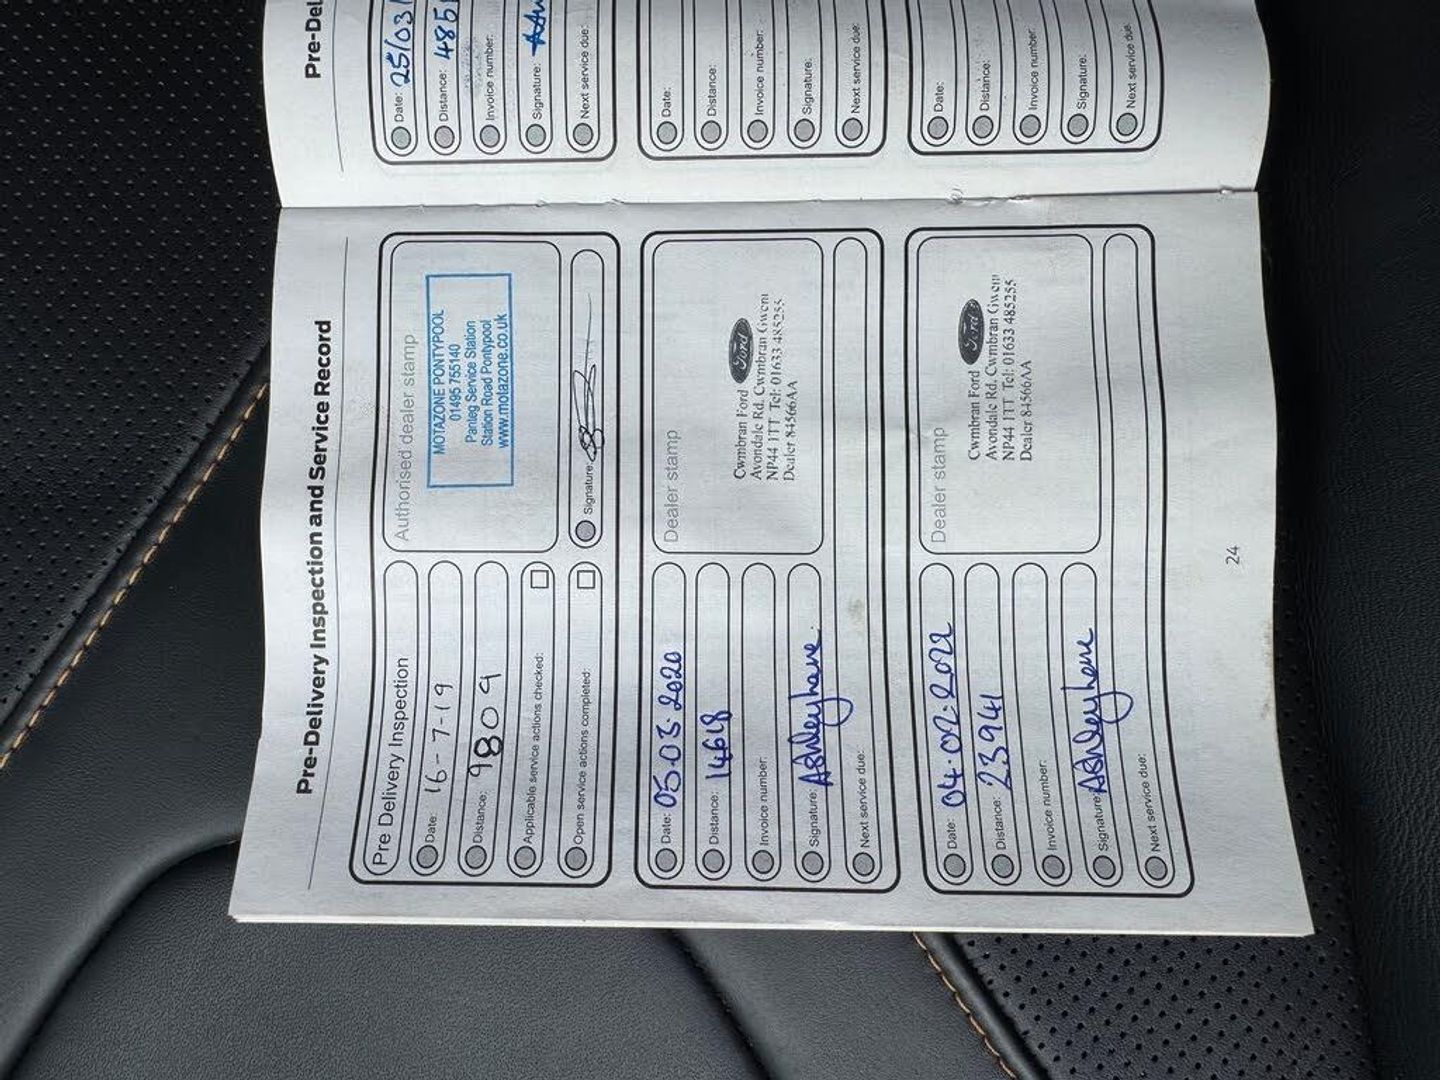 Pre-Delivery Inspection and Service Record
Pre Delivery Inspection
Date: 16-7-19
Distance: 9809
Applicable service actions checked:
Open service actions completed:
Authorised dealer stamp
MOTAZONE PONTYPOOL
01495 755140
Panteg Service Station
Station Road Pontypool
www.motazone.co.uk
Signature:
Date: 05.03.2020
Distance: 14618
Invoice number:
Signature: Ashleyhane.
Next service due:
Dealer stamp
Cwmbran Ford
Ford
Avondale Rd, Cwmbran Gwent
NP44 1TT Tel: 01633 485255
Dealer 84566AA
Date: 04.02.2022
Distance: 23941
Invoice number:
Signature: Ashleyhane
Next service due:
Dealer stamp
Cwmbran Ford
Ford
Avondale Rd, Cwmbran Gwent
NP44 1TT Tel: 01633 485255
Dealer 84566AA
24
Pre-Del
Date: 25/03/
Distance: 485
Invoice number:
Signature:
Next service due:
Date:
Distance:
Invoice number:
Signature:
Next service due:
Date:
Distance:
Invoice number:
Signature:
Next service due: